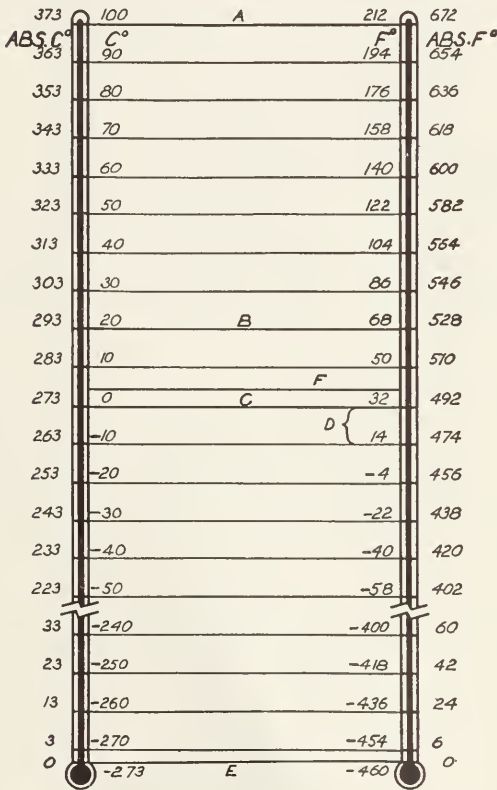 373 100 A 212 672
ABS.C° C° F° ABS.F°
363 90 194 654
353 80 176 636
343 70 158 618
333 60 140 600
323 50 122 582
313 40 104 564
303 30 86 546
293 20 B 68 528
283 10 50 510
F
273 0 C 32 492
D
263 -10 14 474
253 -20 -4 456
243 -30 -22 438
233 -40 -40 420
223 -50 -58 402
33 -240 -400 60
23 -250 -418 42
13 -260 -436 24
3 -270 -454 6
0 -273 E -460 0